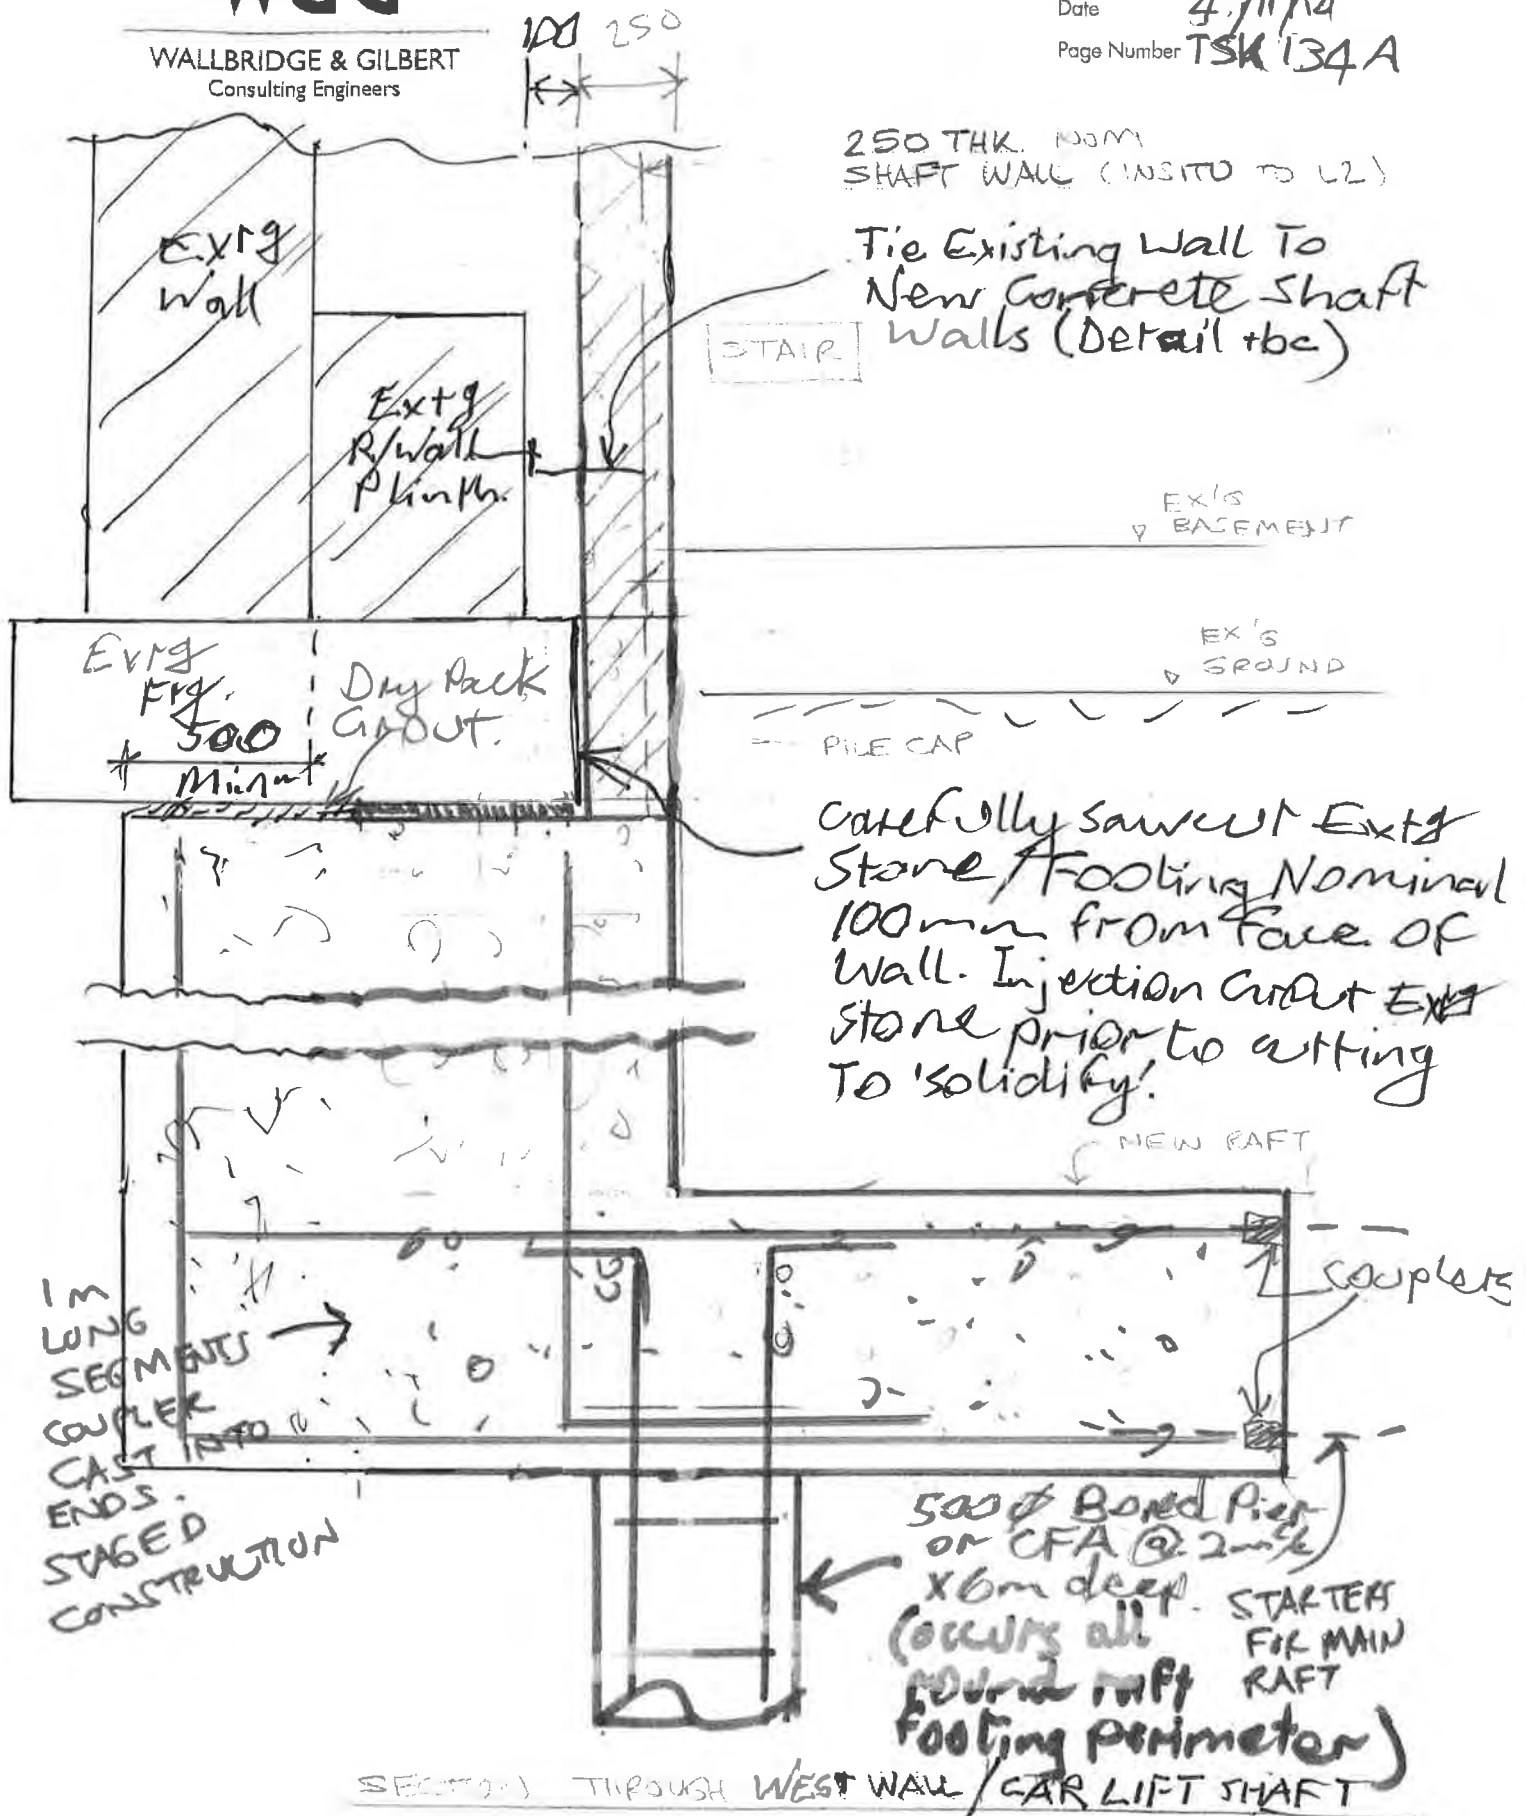 WALLBRIDGE & GILBERT
Consulting Engineers
Date 4/11/14
Page Number TSK 134 A
100 250
250 THK. NOM
SHAFT WALL (INSITU TO L2)
Tie Existing Wall To
New Concrete Shaft
Walls (Detail tbc)
STAIR
Extg
Wall
Extg
R/Wall
Plinth.
EX'G
BASEMENT
EX'G
GROUND
PILE CAP
Extg
Ftg.
500
Min
Dry Pack
Grout.
Carefully Sawcut Extg
Stone/Footing Nominal
100mm from face of
Wall. Injection Grout Extg
Stone prior to cutting
To 'solidify'.
NEW RAFT
Couplers
1m
LONG
SEGMENTS
COUPLER
CAST INTO
ENDS.
STAGED
CONSTRUCTION
500 Ø Bored Pier
or CFA @ 2m
x6m deep.
(occurs all
round raft
footing perimeter)
STARTERS
FOR MAIN
RAFT
SECTION THROUGH WEST WALL / CAR LIFT SHAFT